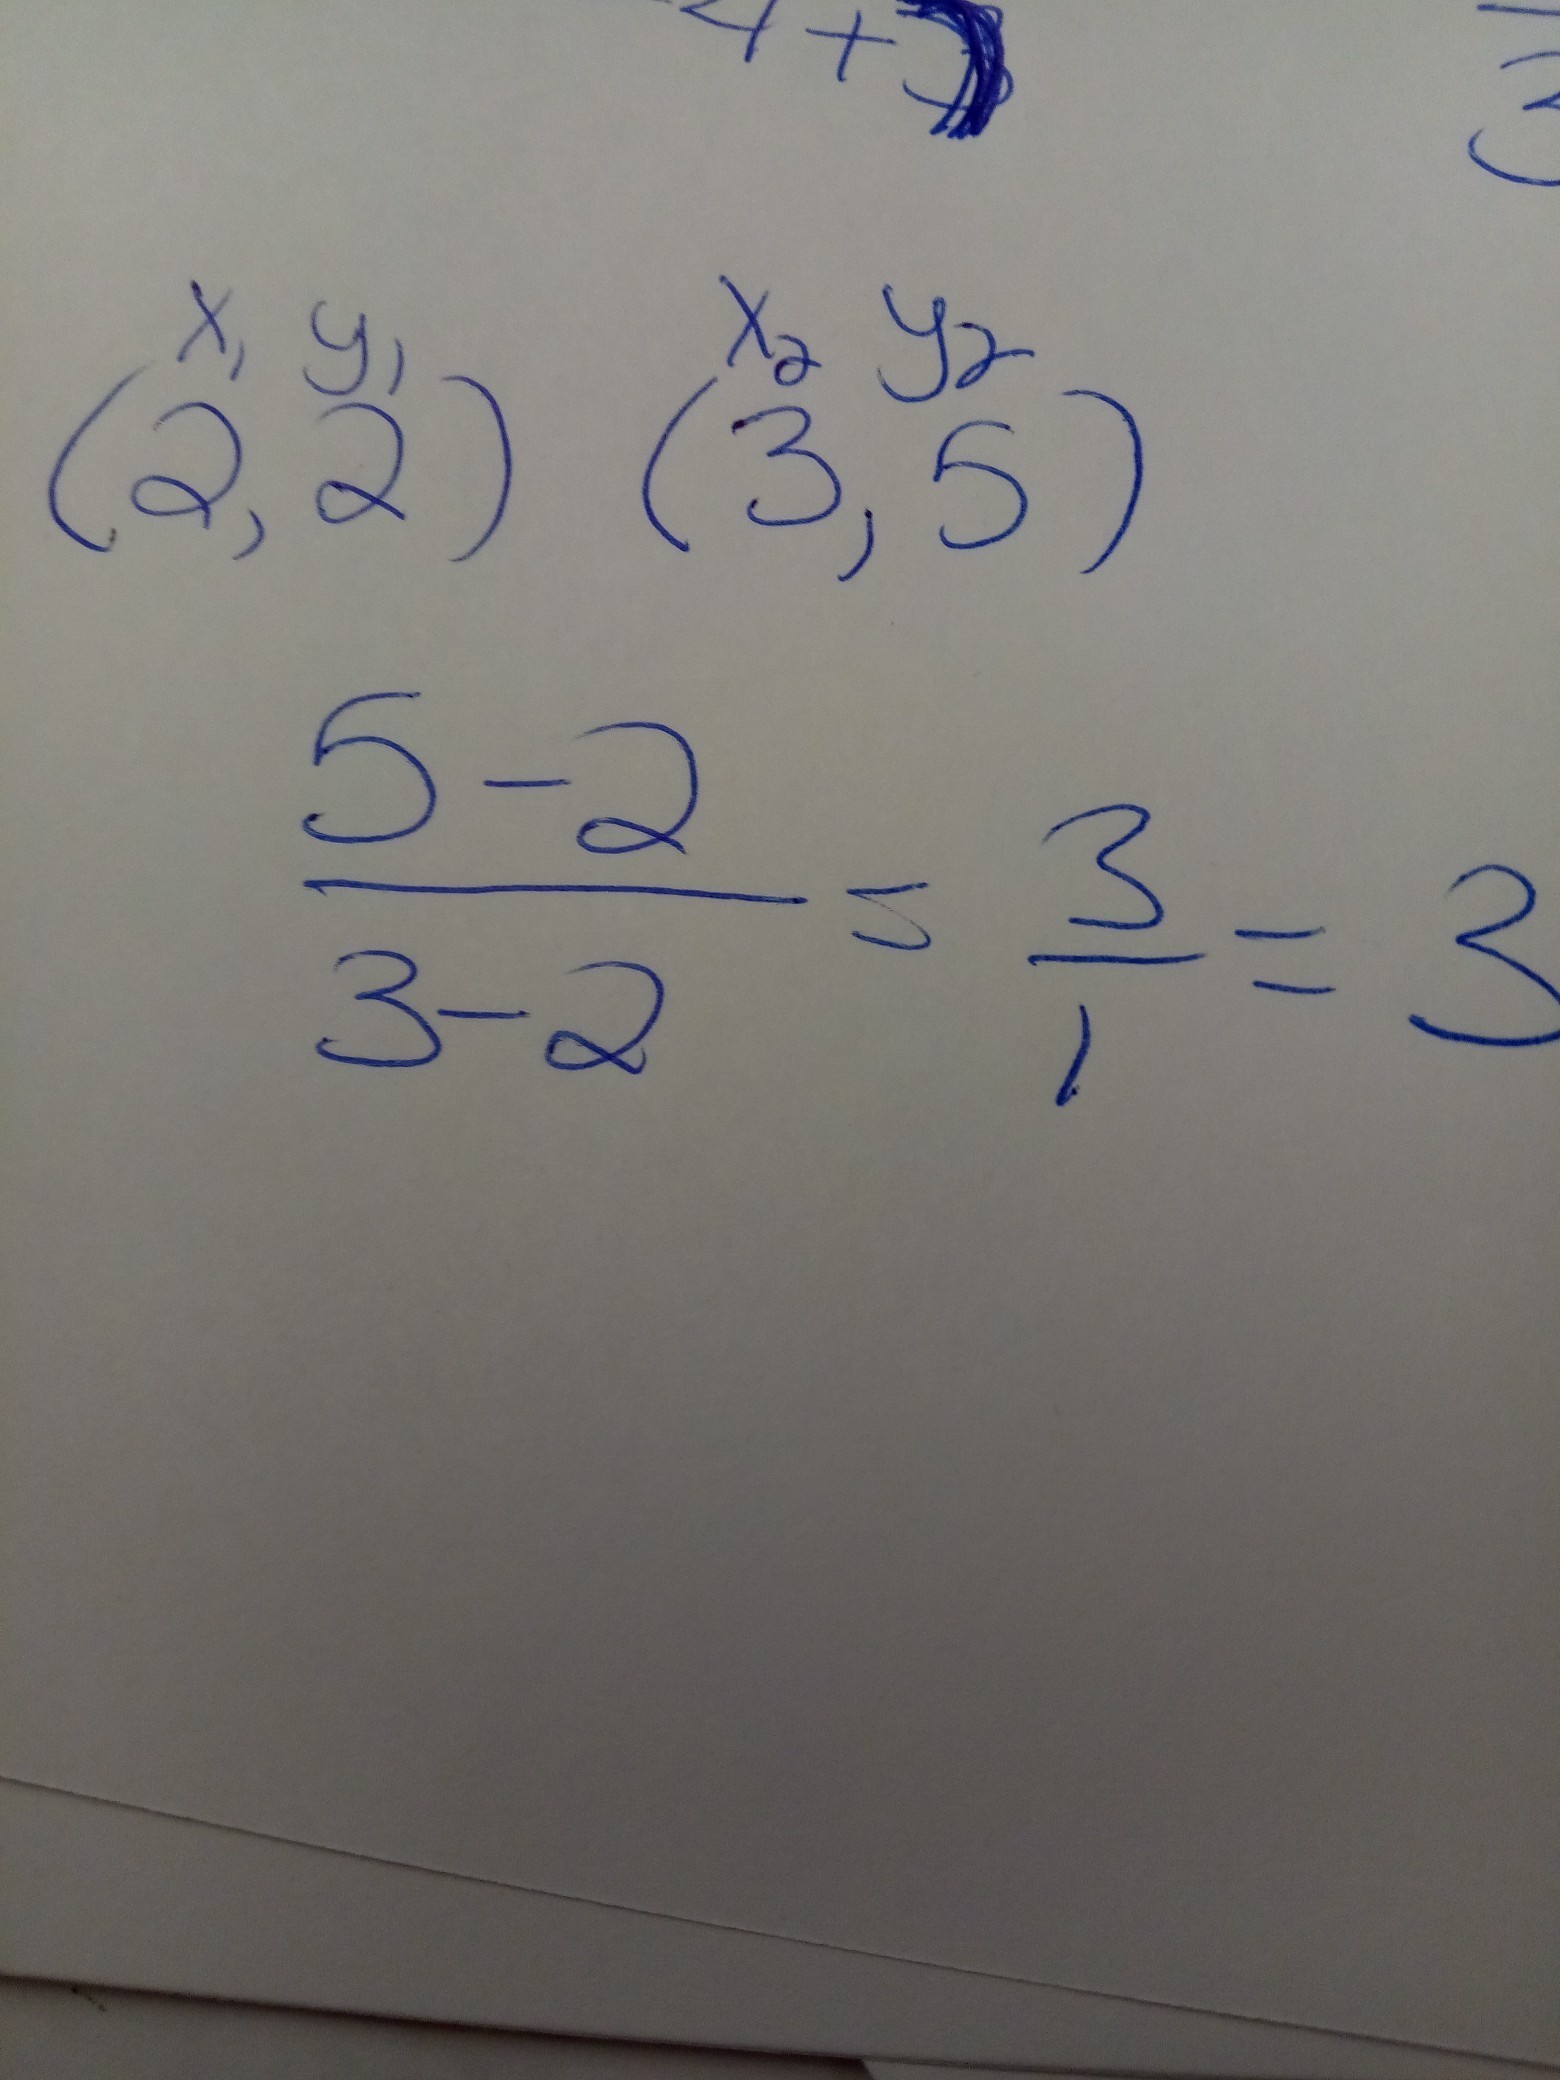 -4+
3
x₁ y₁ x₂ y₂
(2, 2) (3, 5)
5-2
3-2
= 3/1 = 3